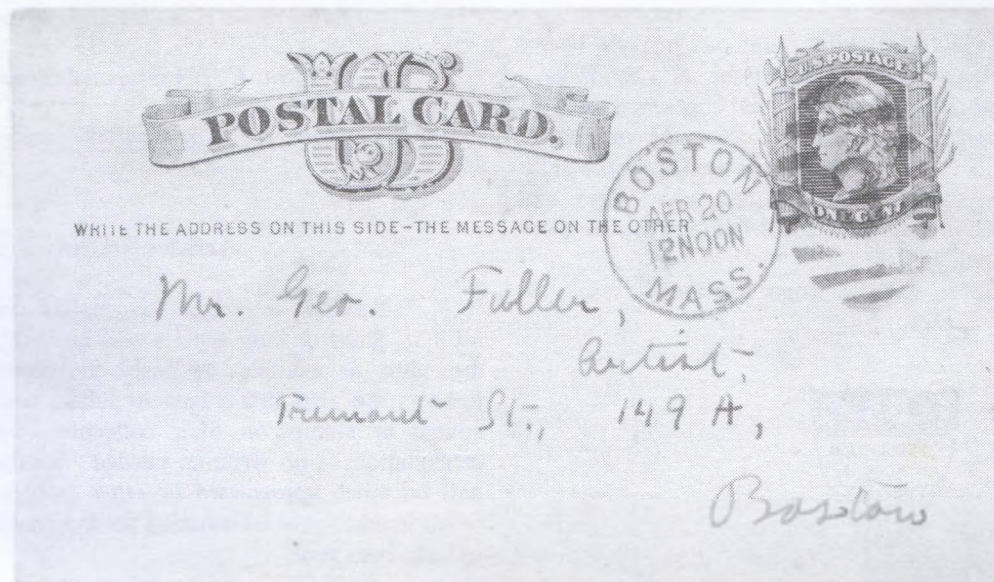 US
POSTAL CARD.
U.S. POSTAGE
WRITE THE ADDRESS ON THIS SIDE-THE MESSAGE ON THE OTHER
BOSTON
APR 20
12 NOON
MASS.
Mr. Geo. Fuller,
Artist,
Tremont St., 149 A,
Boston